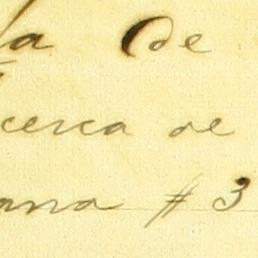 la de
cerca de
ana # 3